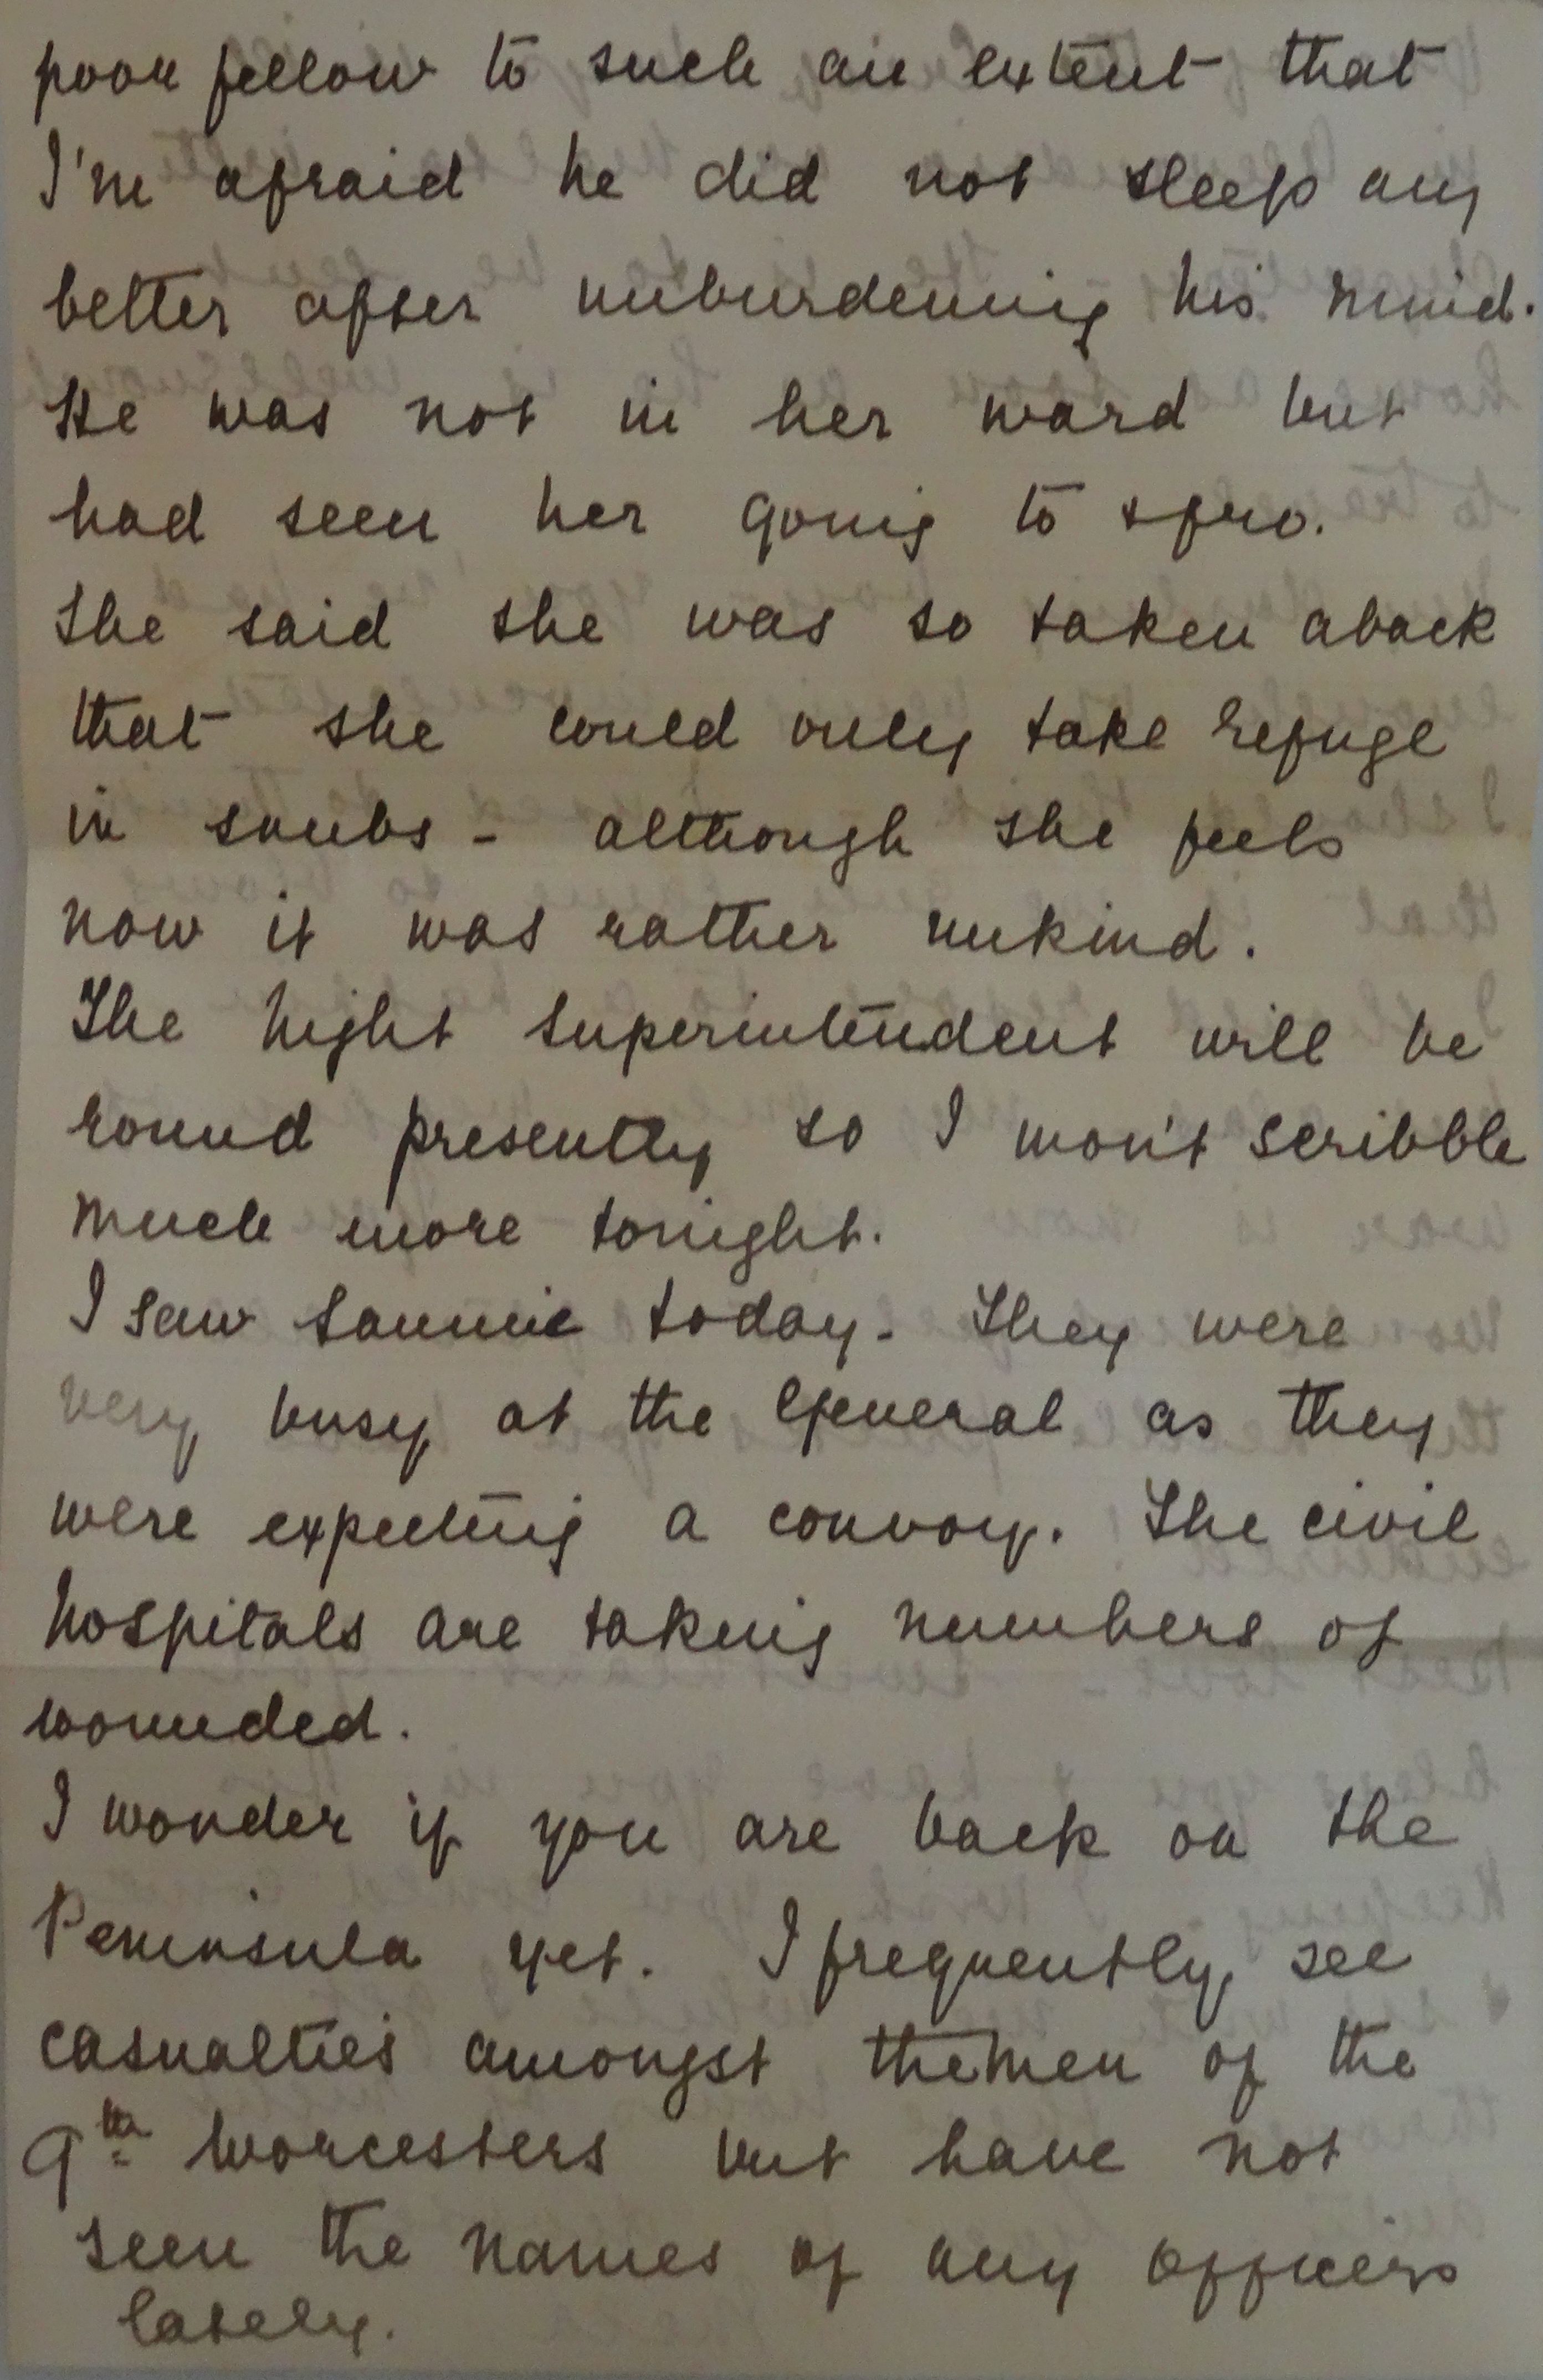 poor fellow to such an extent that
I'm afraid he did not sleep any
better after unburdening his mind.
He was not in her ward but
had seen her going to & fro.
She said she was so taken aback
that she could only take refuge
in snubs - although she feels
now it was rather unkind.
The Night Superintendent will be
round presently so I won't scribble
much more tonight.
I saw Sammie today. They were
very busy at the General as they
were expecting a convoy. The civil
hospitals are taking numbers of
wounded.
I wonder if you are back on the
Peninsula yet. I frequently see
casualties amongst the men of the
9th Worcesters but have not
seen the names of any officers
lately.